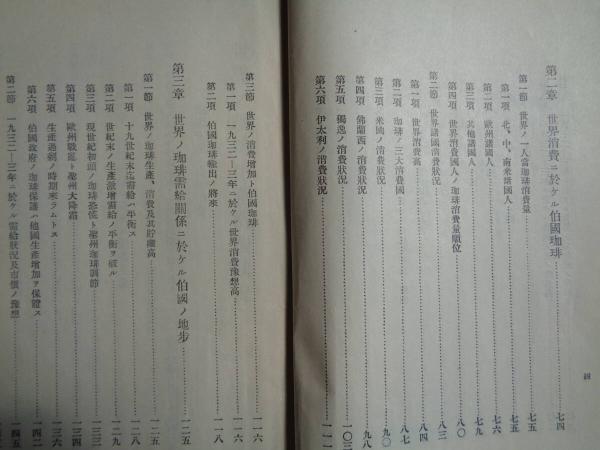 第二章 世界消費ニ於ケル伯國珈琲……七四
第一節 世界ノ一人當珈琲消費量……七五
第一項 北、中、南米諸國人……七五
第二項 歐洲諸國人……七六
第三項 其他諸國人……七九
第四項 世界消費國人ノ珈琲消費量順位……八〇
第二節 世界諸國消費狀況……八三
第一項 世界消費高……八四
第二項 珈琲ノ三大消費國……八七
第三項 米國ノ消費狀況……九〇
第四項 佛蘭西ノ消費狀況……九八
第五項 獨逸ノ消費狀況……一〇三
第六項 伊太利ノ消費狀況……一一一
四
第三節 世界ノ消費增加ト伯國珈琲……一一六
第一項 一九三二―三年ニ於ケル世界消費豫想高……一一六
第二項 伯國珈琲輸出ノ將來……一一八
第三章 世界ノ珈琲需給關係ニ於ケル伯國ノ地步……一二五
第一節 世界ノ珈琲生產、消費及其貯藏高……一二五
第一項 十九世紀末迄需給ハ平衡ス……一二九
第二項 世紀末ノ生產激增需給ノ平衡ヲ破ル……一三二
第三項 現世紀初頭ノ珈琲恐慌ト聖州珈琲調節……一三三
第四項 歐州戰亂ト聖州大降霜……一三四
第五項 生產過剩ノ時期來ラムトス……一三六
第六項 伯國政府ノ珈琲保護ハ他國生產增加ヲ保證ス……一四二
第二節 一九三二―三年ニ於ケル需給狀況及市價ノ豫想……一四五